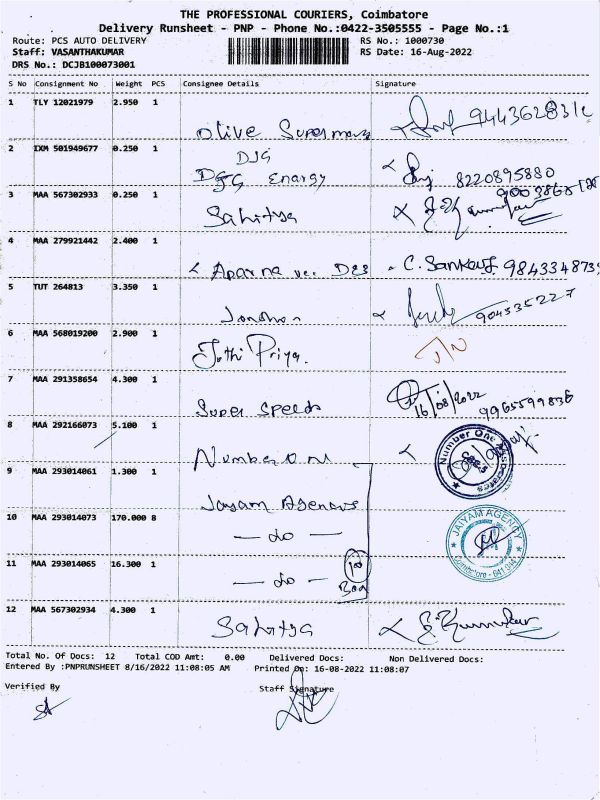 THE PROFESSIONAL COURIERS, Coimbatore
Delivery Runsheet - PNP - Phone No.:0422-3505555 - Page No.:1
Route: PCS AUTO DELIVERY RS No.: 1000730
Staff: VASANTHAKUMAR RS Date: 16-Aug-2022
DRS No.: DCJB100073001
S No Consignment No Weight PCS Consignee Details Signature
1 TLY 12021979 2.950 1
Olive
2 IXM 501949677 0.250 1
DJG
Energy 8220895880
3 MAA 567302933 0.250 1
Sahitya
4 MAA 279921442 2.400 1
Aparna C. Sankar 984334873
5 TUT 264813 3.350 1
904535227
6 MAA 568019200 2.900 1
Jothi Priya.
7 MAA 291358654 4.300 1
Super Speeds 16/08/2022 9965599836
8 MAA 292166073 5.100 1
Number One
Number One
9 MAA 293014061 1.300 1
Jayam Agencies
10 MAA 293014073 170.000 8
— do —
JAIYAM AGENCY
Coimbatore - 641 044
11 MAA 293014065 16.300 1
— do —
12 MAA 567302934 4.300 1
Sahitya
Total No. Of Docs: 12 Total COD Amt: 0.00 Delivered Docs: Non Delivered Docs:
Entered By :PNPRUNSHEET 8/16/2022 11:08:05 AM Printed On: 16-08-2022 11:08:07
Verified By Staff Signature